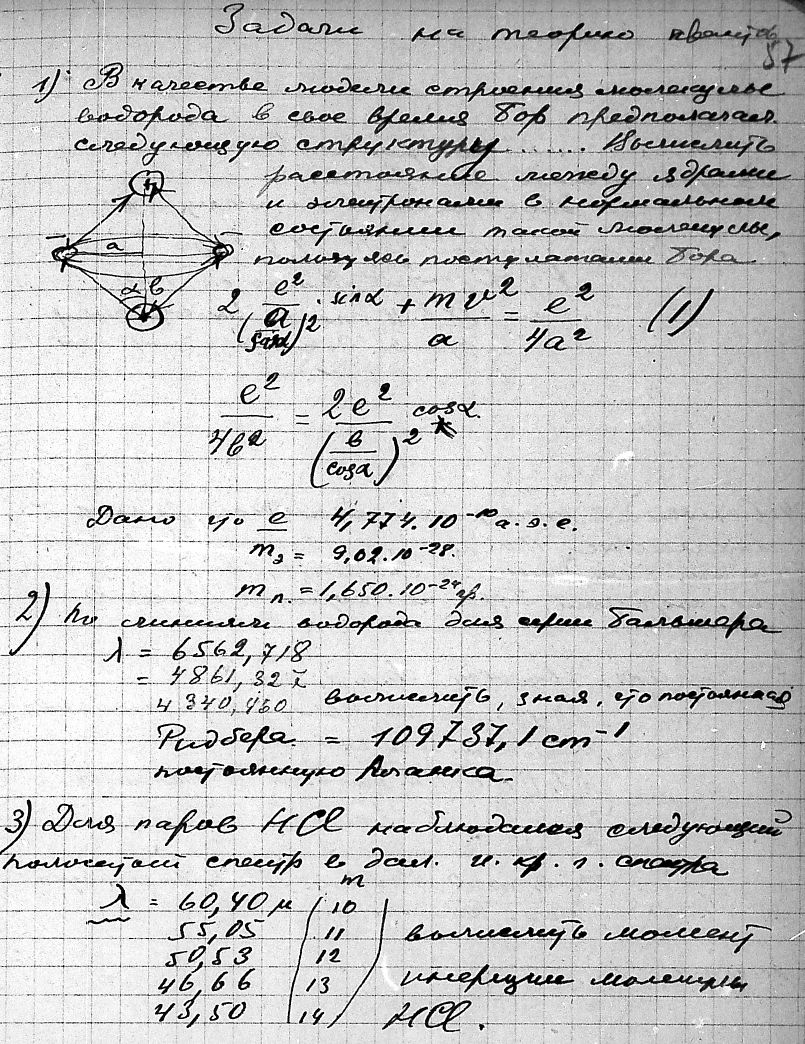 Задачи на теорию квантов
57
1) В качестве модели строения молекулы
водорода в свое время Бор предполагал
следующую структуру ...... Вычислить
расстояние между ядрами
и электронами в нормальном
состоянии такой молекулы,
пользуясь постулатами Бора
a
α b
2 e²/(a/sinα)² · sinα + mv²/a = e²/4a² (1)
e²/4b² = 2e²/(b/cosα)² cosα.
Дано что e 4,774.10⁻¹⁰ а.э.е.
mэ = 9,02.10⁻²⁸.
mп. = 1,650.10⁻²⁴ гр.
2) По линиям водорода для серии Бальмера
λ = 6562,718
= 4861,327
4340,460 вычислить, зная, что постоянная
Ридбера = 109737,1 cm⁻¹
постоянную Планка.
3) Для паров HCl наблюдался следующий
полосатый спектр в дал. и. кр. ч. спектра
m
λ = 60,40 μ 10
55,05 11 вычислить момент
50,53 12
46,66 13 инерции молекулы
43,50 14 HCl.